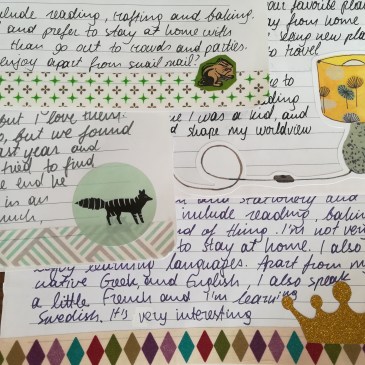 clude reading, crafting and baking.
and prefer to stay at home with
than go out to crowds and parties.
enjoy apart from snail mail?
our favorite plac
ry from home
new plac
to travel
e to
ading
e I was a kid, and
d shape my worldview
but I love them.
o, but we found
ast year and
tried to find
e end he
in an
much,
and stationery and
include reading, baking
nd of thing. I'm not very
to stay at home. I also
enjoy learning languages. Apart from my
native Greek and English, I also speak
a little French and I'm learning
Swedish. It's very interesting